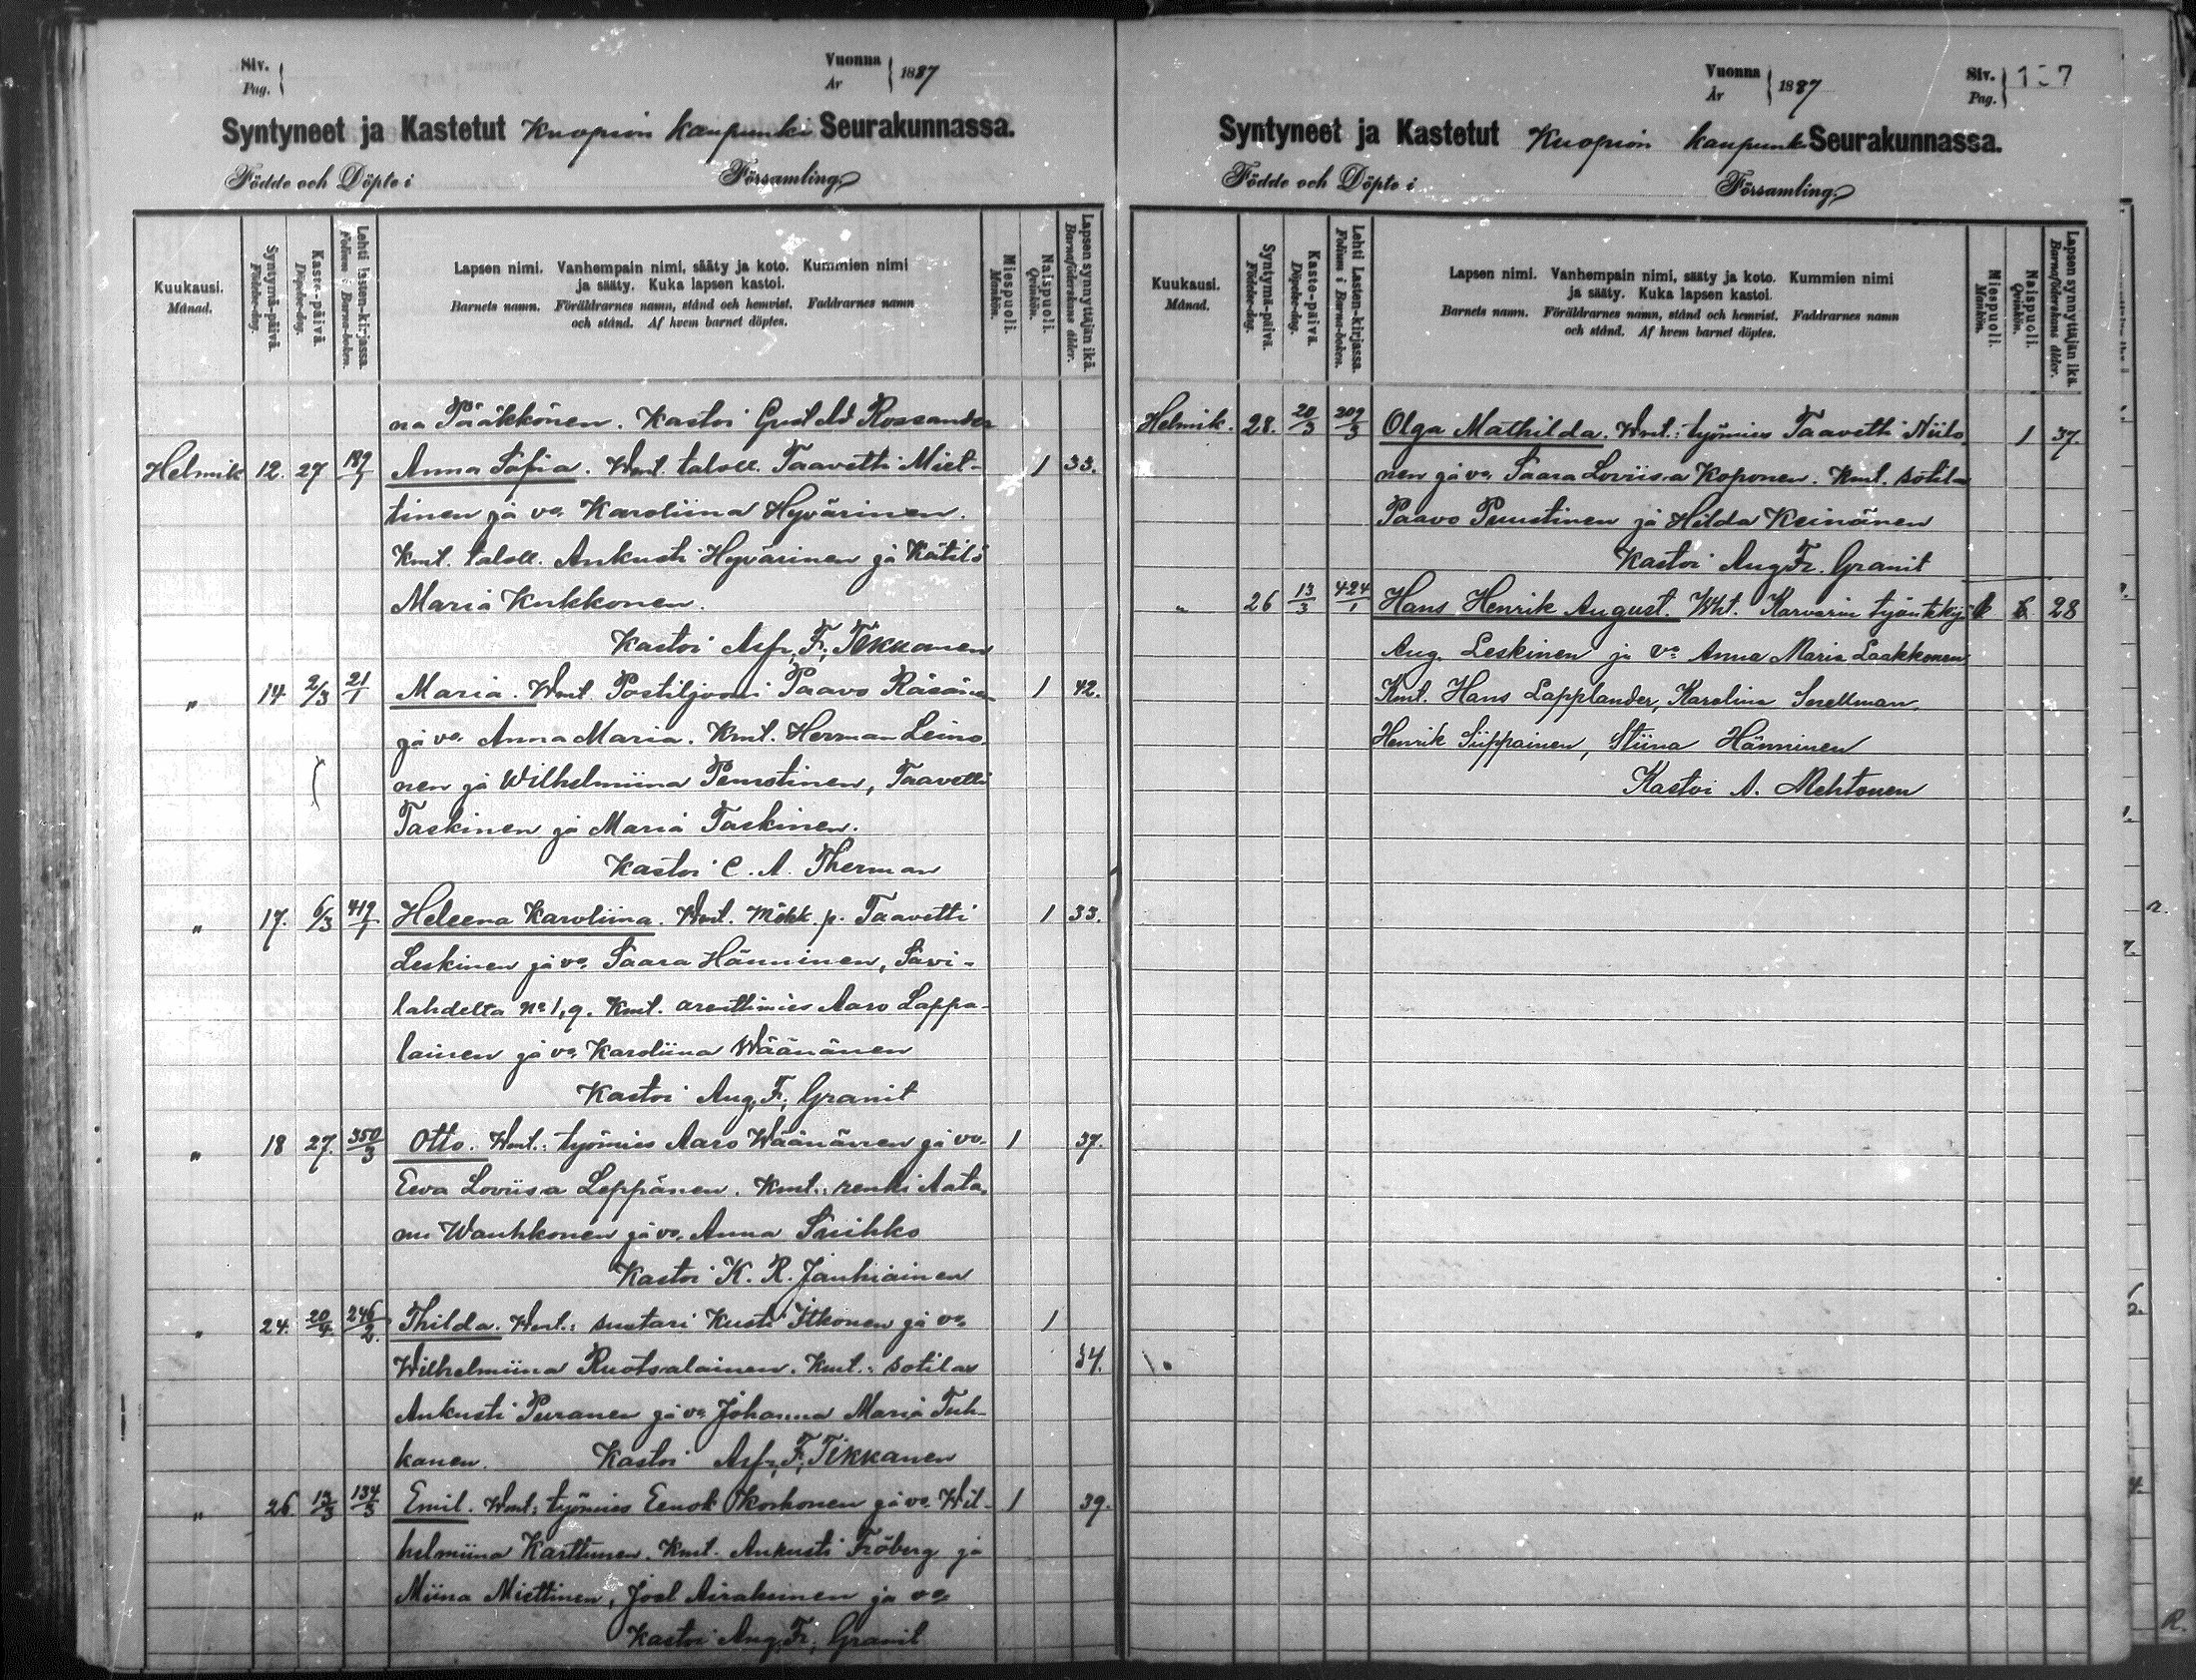 Siv.
Pag.
Vuonna
År 1887
Syntyneet ja Kastetut Kuopion kaupunki Seurakunnassa.
Födde och Döpte i Församling
Kuukausi.
Månad.
Syntymä-päivä.
Födelse-dag.
Kaste-päivä.
Döpelse-dag.
Lehti Lasten-kirjassa.
Folium i Barna-boken.
Lapsen nimi. Vanhempain nimi, sääty ja koto. Kummien nimi
ja sääty. Kuka lapsen kastoi.
Barnets namn. Föräldrarnes namn, stånd och hemvist. Faddrarnes namn
och stånd. Af hvem barnet döptes.
Miespuoli.
Mankön.
Naispuoli.
Qvinkön.
Lapsen synnyttäjän ikä.
Barnaföderskans ålder.
na Pääkkönen. Kastoi Gust. Ad Rossander
Helmik 12. 27 189/1 Anna Sofia. Wmt. taloll. Taavetti Miet- 1 33.
tinen ja vo. Karoliina Hyvärinen.
Kmt. taloll. Aukusti Hyvärinen ja Kätilö
Maria Kukkonen.
Kastoi F. Tikkanen
" 14. 2/3 21/1 Maria. Wmt. Postiljooni Paavo Räsänen 1 42.
ja vo. Anna Maria. Kmt. Herman Leino-
nen ja Wilhelmiina Taavetti
Taskinen ja Maria Taskinen.
Kastoi C. A. Therman
" 17. 6/3 419/1 Heleena Karoliina. Wmt. Mökk. p. Taavetti 1 33.
Leskinen ja vo. Saara Hänninen, Savi-
lahdelta No 1,9. Kmt. arenttimies Aaro Lappa-
lainen ja vo. Karoliina Wäänänen
Kastoi Aug. F. Granit
" 18 27. 350/3 Otto. Wmt.: työmies Aaro Wäänänen ja vo. 1 37.
Eeva Loviisa Leppänen. Kmt.: renki Aata-
mi Wauhkonen ja vo. Anna Suihko
Kastoi K. R. Jauhiainen
" 24. 20/4 246/2. Thilda. Wmt.: suutari Kusti Itkonen ja vo. 1
Wilhelmiina Ruotsalainen. Kmt.: sotilas 34.
Aukusti Puranen ja vo. Johanna Maria Tuh-
kanen. Kastoi F. Tikkanen
" 26. 13/3 134/3 Emil. Wmt.: työmies Eenok Korhonen ja vo. Wil- 1 39.
helmiina Karttunen. Kmt. Aukusti Fröberg ja
Miina Miettinen, Joel Airaksinen ja vo.
Kastoi Aug. Fr. Granit
Vuonna
År 1887
Siv.
Pag.
Syntyneet ja Kastetut Kuopion kaupunk Seurakunnassa.
Födde och Döpte i Församling.
Kuukausi.
Månad.
Syntymä-päivä.
Födelse-dag.
Kaste-päivä.
Döpelse-dag.
Lehti Lasten-kirjassa.
Folium i Barna-boken.
Lapsen nimi. Vanhempain nimi, sääty ja koto. Kummien nimi
ja sääty. Kuka lapsen kastoi.
Barnets namn. Föräldrarnes namn, stånd och hemvist. Faddrarnes namn
och stånd. Af hvem barnet döptes.
Miespuoli.
Mankön.
Naispuoli.
Qvinkön.
Lapsen synnyttäjän ikä.
Barnaföderskans ålder.
Helmik. 28. 20/3 209/3 Olga Mathilda. Wmt.: työmies Taavetti Niilo- 1 37.
nen ja vo. Saara Loviisa Koponen. Kmt. sotilas
Paavo Puustinen ja Hilda Keinänen
Kastoi Aug. Fr. Granit
" 26 13/3 424/1 Hans Henrik August. Wht. Karvarin työntekijä 28
Aug. Leskinen ja vo Anna Maria Laakkonen
Kmt. Hans Lapplander, Karolina Snellman,
Henrik Siippainen, Stiina Hänninen
Kastoi A. Mehtonen